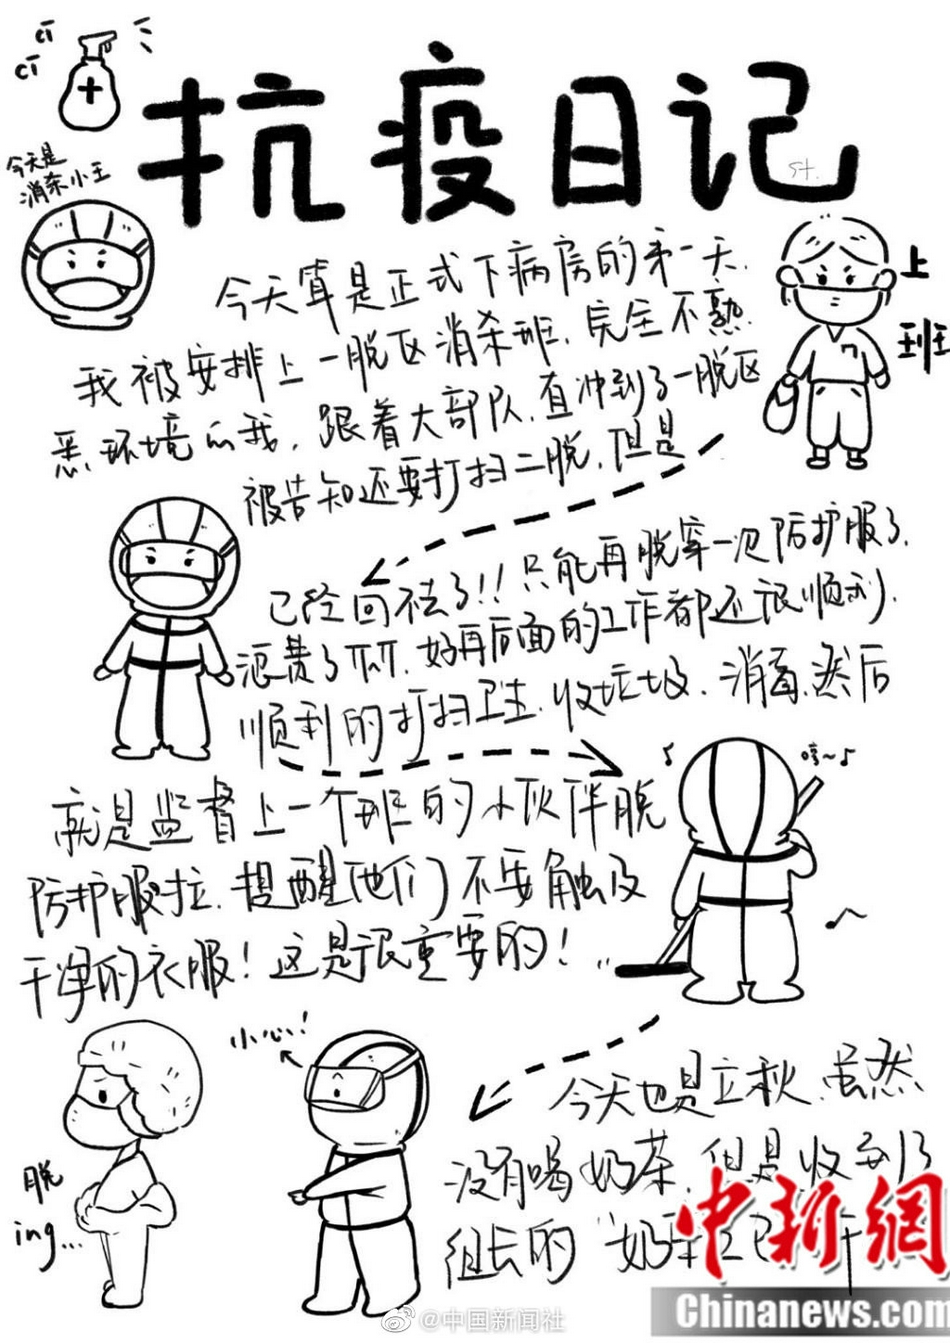 cī
cī
抗疫日记
st.
今天是
消杀小王
上
班
今天算是正式下病房的第一天.
我被安排上一脱区消杀班,完全不熟
悉环境的我,跟着大部队,直冲到了一脱区
被告知还要打扫二脱,但是
已经回去了!!只能再脱穿一次防护服了.
浪费了TAT.好再后面的工作都还很顺利.
顺利的打扫卫生.收垃圾.消毒.然后
哼~♪
就是监督上一个班的小伙伴脱
防护服拉.提醒他们不要触及
干净的衣服!这是很重要的!
小心!
脱
ing...
今天也是立秋.虽然
没有喝奶茶.但是收到了
组长的"奶茶
中新網
Chinanews.com
@中国新闻社